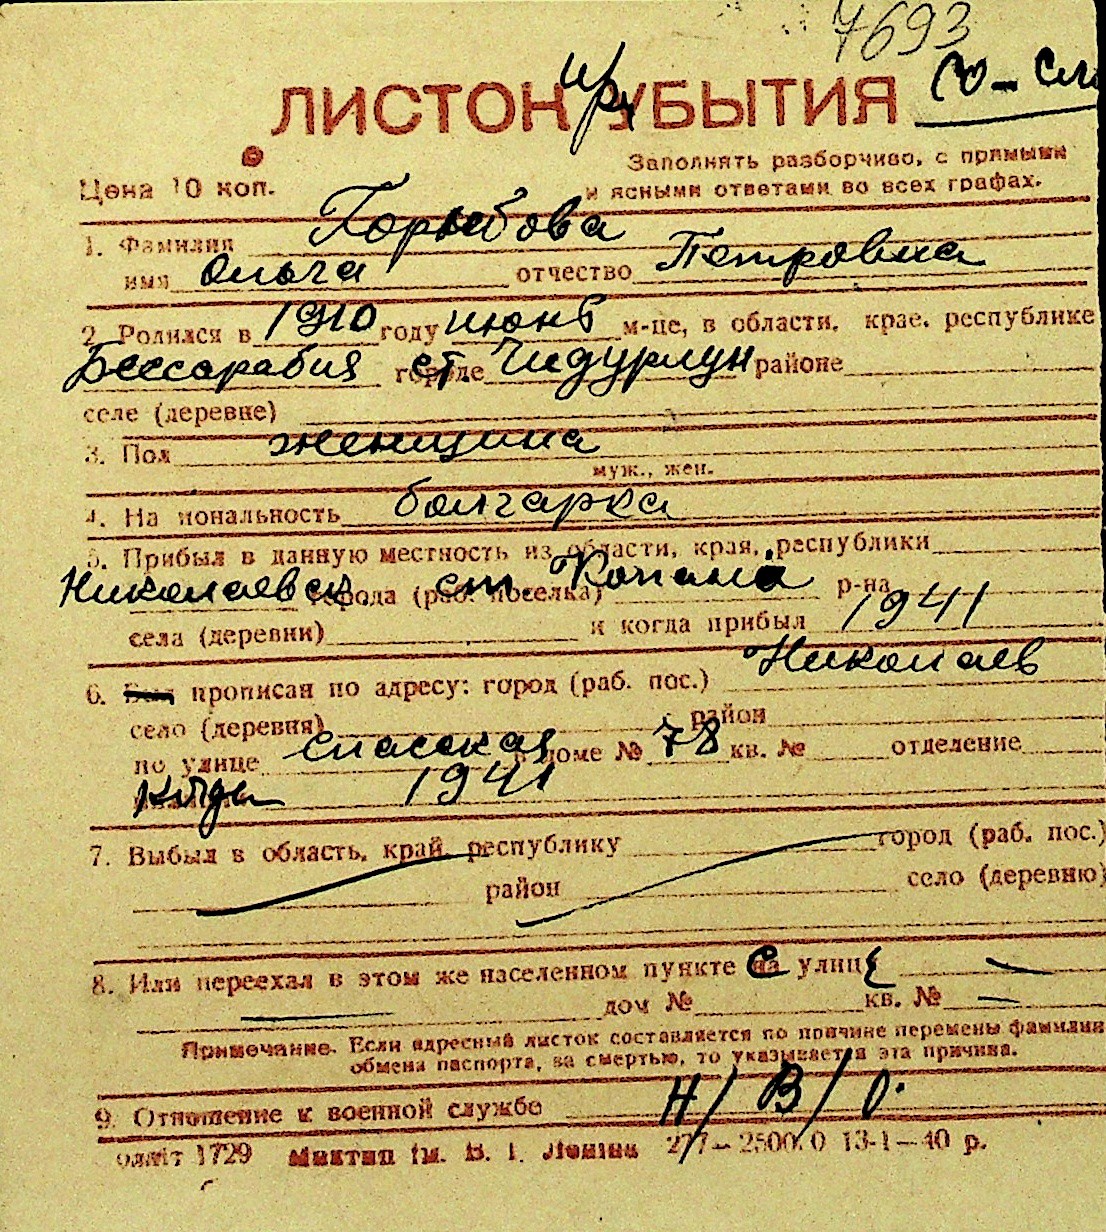 7693
ЛИСТОН УБЫТИЯ
Цена 10 коп.
Заполнять разборчиво, с прямыми
и ясными ответами во всех графах.
1. Фамилия
имя Ольга отчество Петровна
2. Родился в 1910 году июнь м-це, в области, крае, республике
Бессарабия городе ст. Чидурлун районе
селе (деревне)
3. Пол женщина
муж., жен.
4. На иональность болгарка
5. Прибыл в данную местность из области, края, республики
Николаевск города (раб. поселка) ст. р-на
села (деревни) и когда прибыл 1941
6. прописан по адресу: город (раб. пос.) Николаев
село (деревня) район
по улице Спасская в доме № 78 кв. № отделение
1941
7. Выбыл в область, край, республику город (раб. пос.)
район село (деревню)
8. Или переехал в этом же населенном пункте с улице
дом № кв. №
Примечание. Если адресный листок составляется по причине перемены фамилии
обмена паспорта, за смертью, то указывается эта причина.
9. Отношение к военной службе Н/В/О.
олміт 1729 Миктип ім. В. І. Леніна 277—2500 0 13-1—40 р.